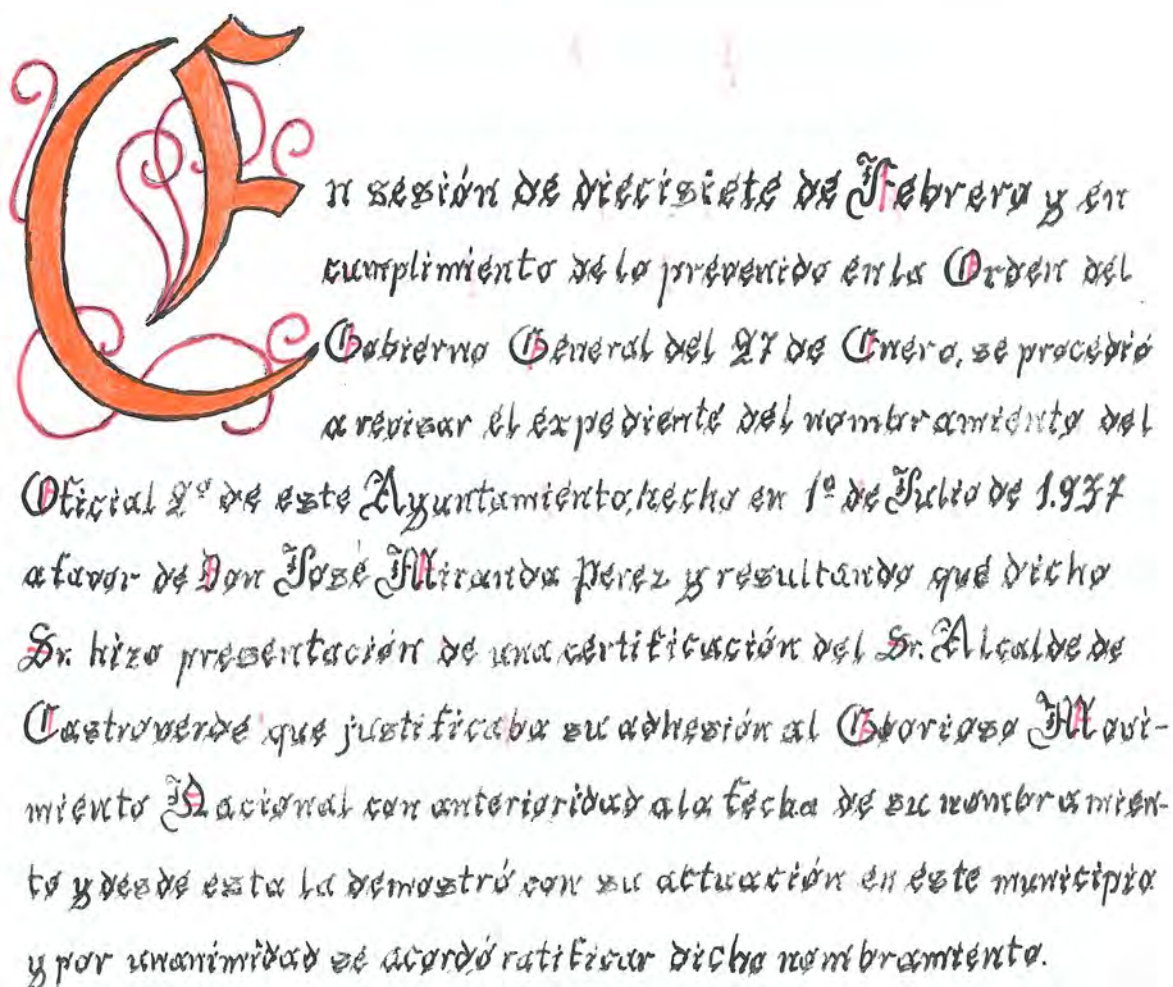 En sesión de diecisiete de Febrero y en
cumplimiento de lo prevenido en la Orden del
Gobierno General del 27 de Enero, se procedió
a revisar el expediente del nombramiento del
Oficial 2º de este Ayuntamiento, hecho en 1º de Julio de 1.937
a favor de Don José Miranda Perez y resultando que dicho
Sr. hizo presentación de una certificación del Sr. Alcalde de
Castroverde que justificaba su adhesión al Glorioso Movi-
miento Nacional con anterioridad a la fecha de su nombramien-
to y desde esta la demostró con su actuación en este municipio
y por unanimidad se acordó ratificar dicho nombramiento.